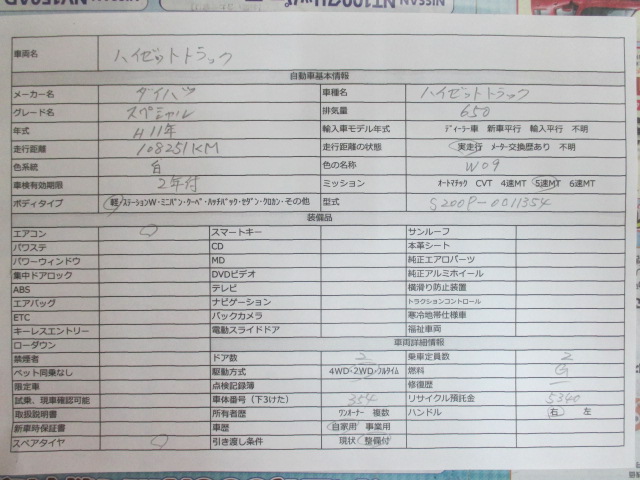 NISSAN NT100クリッパー
NISSAN NV150AD
車両名 ハイゼットトラック
自動車基本情報
メーカー名 ダイハツ 車種名 ハイゼットトラック
グレード名 スペシャル 排気量 650
年式 H11年 輸入車モデル年式 ディーラー車 新車平行 輸入平行 不明
走行距離 108251KM 走行距離の状態 実走行 メーター交換歴あり 不明
色系統 白 色の名称 W09
車検有効期限 2年付 ミッション オートマチック CVT 4速MT 5速MT 6速MT
ボディタイプ 軽・ステーションW・ミニバン・クーペ・ハッチバック・セダン・クロカン・その他 型式 S200P-0011354
装備品
エアコン ○ スマートキー サンルーフ
パワステ CD 本革シート
パワーウィンドウ MD 純正エアロパーツ
集中ドアロック DVDビデオ 純正アルミホイール
ABS テレビ 横滑り防止装置
エアバッグ ナビゲーション トラクションコントロール
ETC バックカメラ 寒冷地帯仕様車
キーレスエントリー 電動スライドドア 福祉車両
ローダウン 車両詳細情報
禁煙者 ドア数 2 乗車定員数 2
ペット同乗なし 駆動方式 4WD・2WD・フルタイム 燃料 G
限定車 点検記録簿 修復歴 ー
試乗、現車確認可能 車体番号（下3けた） 354 リサイクル預託金 5340
取扱説明書 所有者歴 ワンオーナー 複数 ハンドル 右 左
新車時保証書 車歴 自家用 事業用
スペアタイヤ ○ 引き渡し条件 現状 整備付